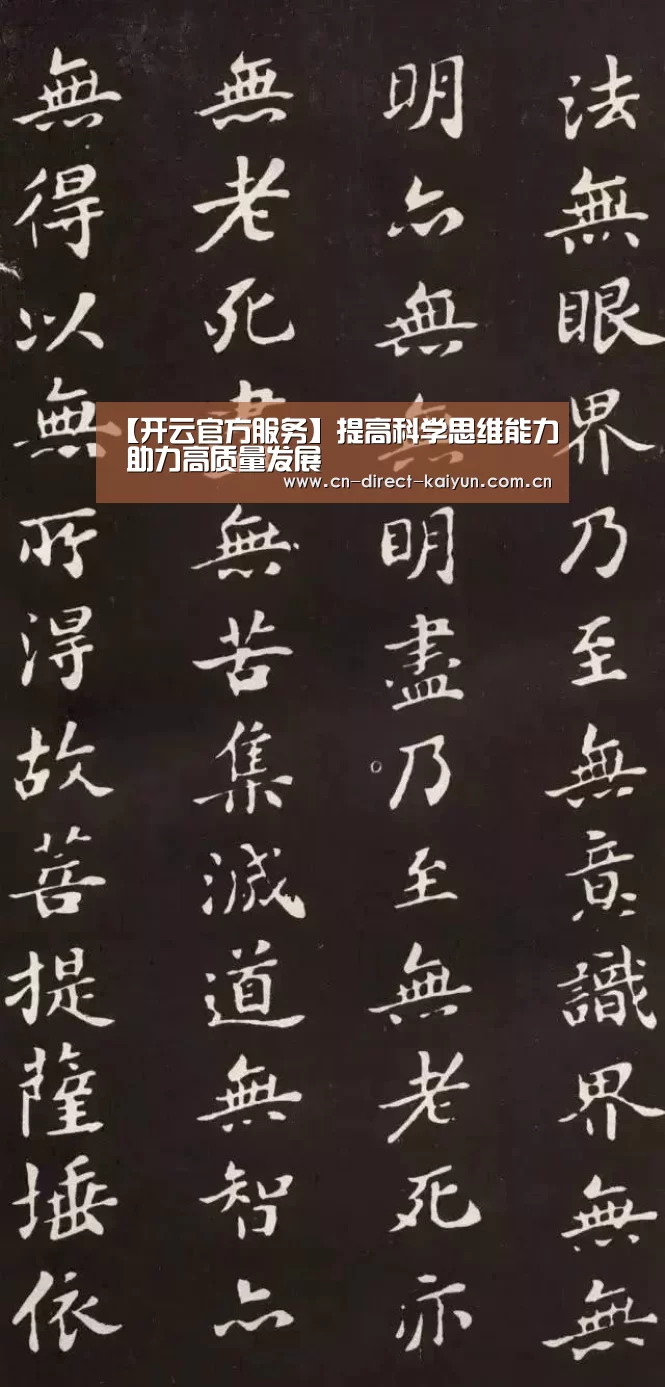 法無眼界乃至無意識界無無
明亦無無明盡乃至無老死亦
無老死盡無苦集滅道無智亦
無得以無所得故菩提薩埵依
【开云官方服务】提高科学思维能力
助力高质量发展
www.cn-direct-kaiyun.com.cn